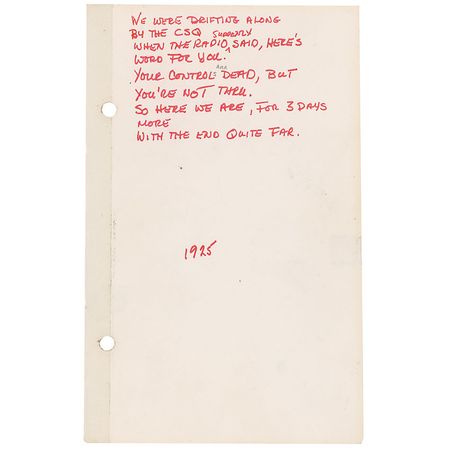 WE WERE DRIFTING ALONG
BY THE CSQ
WHEN THE RADIO SUDDENLY SAID, HERE'S
WORD FOR YOU.
YOUR CONTROLS ARE DEAD, BUT
YOU'RE NOT THRU.
SO HERE WE ARE, FOR 3 DAYS
MORE
WITH THE END QUITE FAR.
1925